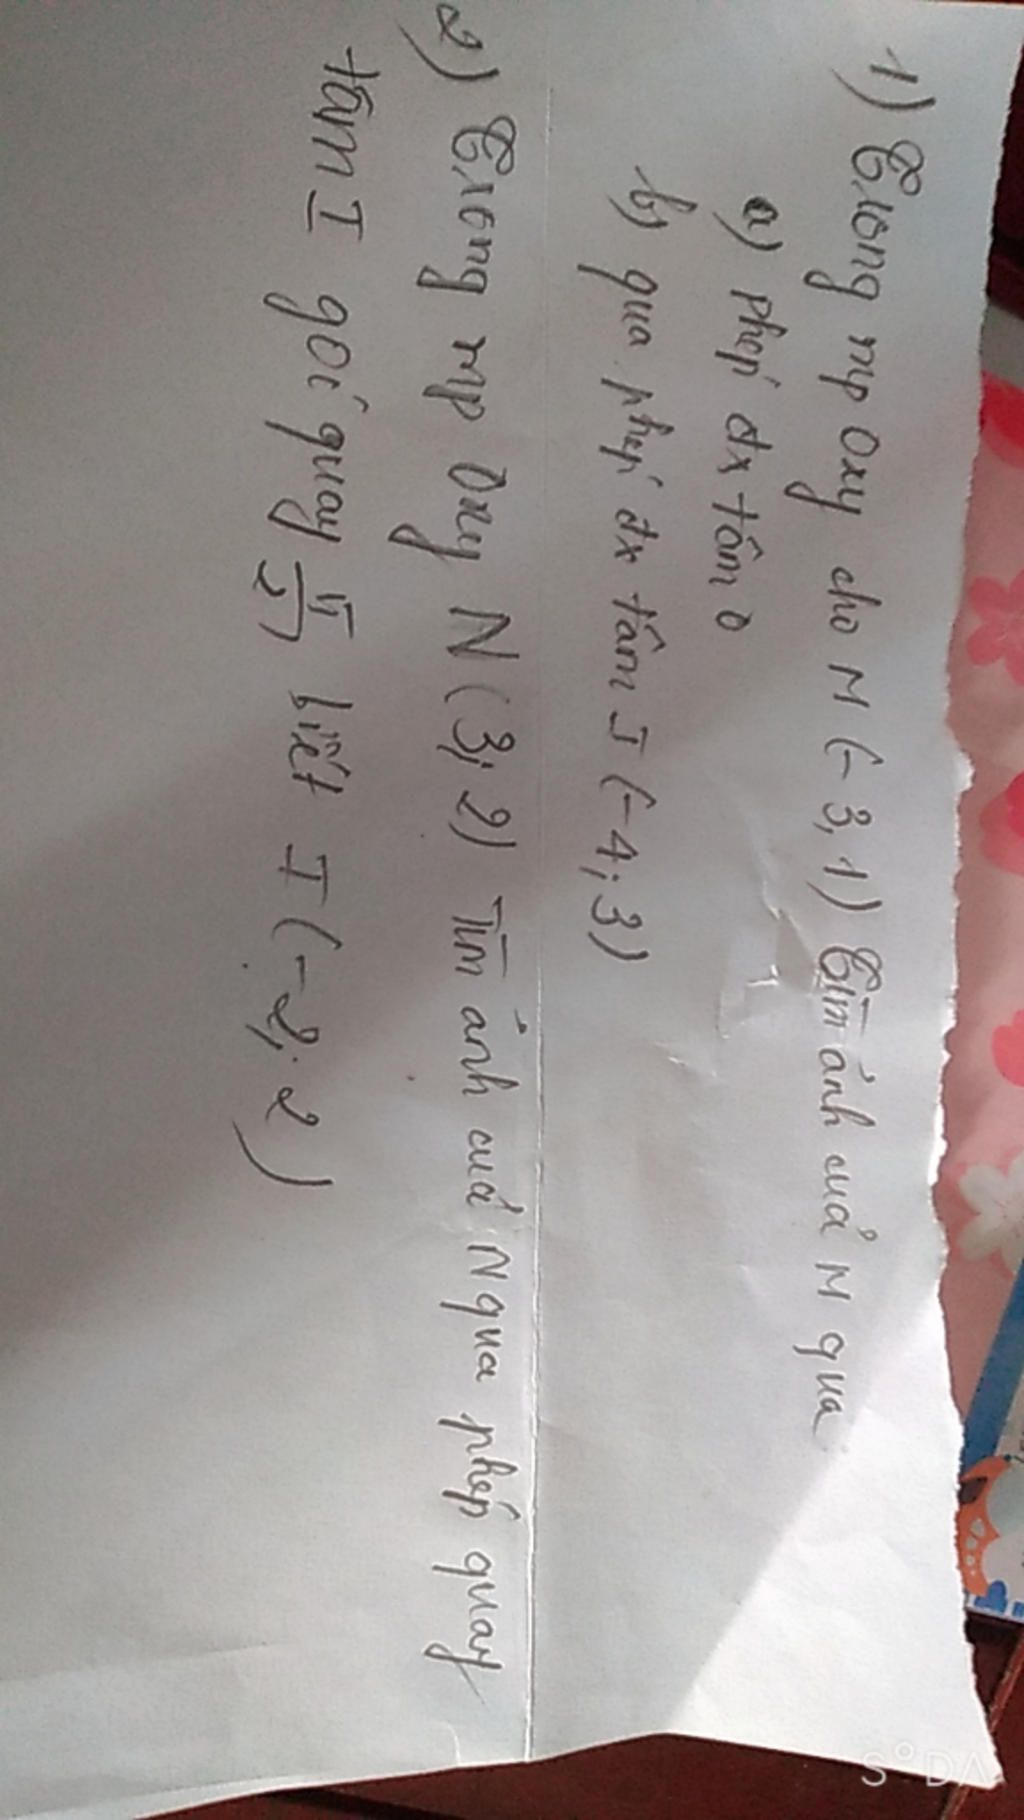 1) Trong mp Oxy cho M (-3, 1) Tìm ảnh của M qua
a) phép đx tâm O
b) qua phép đx tâm I (-4; 3)
2) Trong mp Oxy N (3; 2) Tìm ảnh của N qua phép quay
tâm I góc quay π/2, biết I (-2; 2)
S°DA